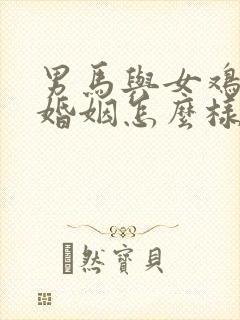 男馬與女鸡
婚姻怎麼樣
然寶貝